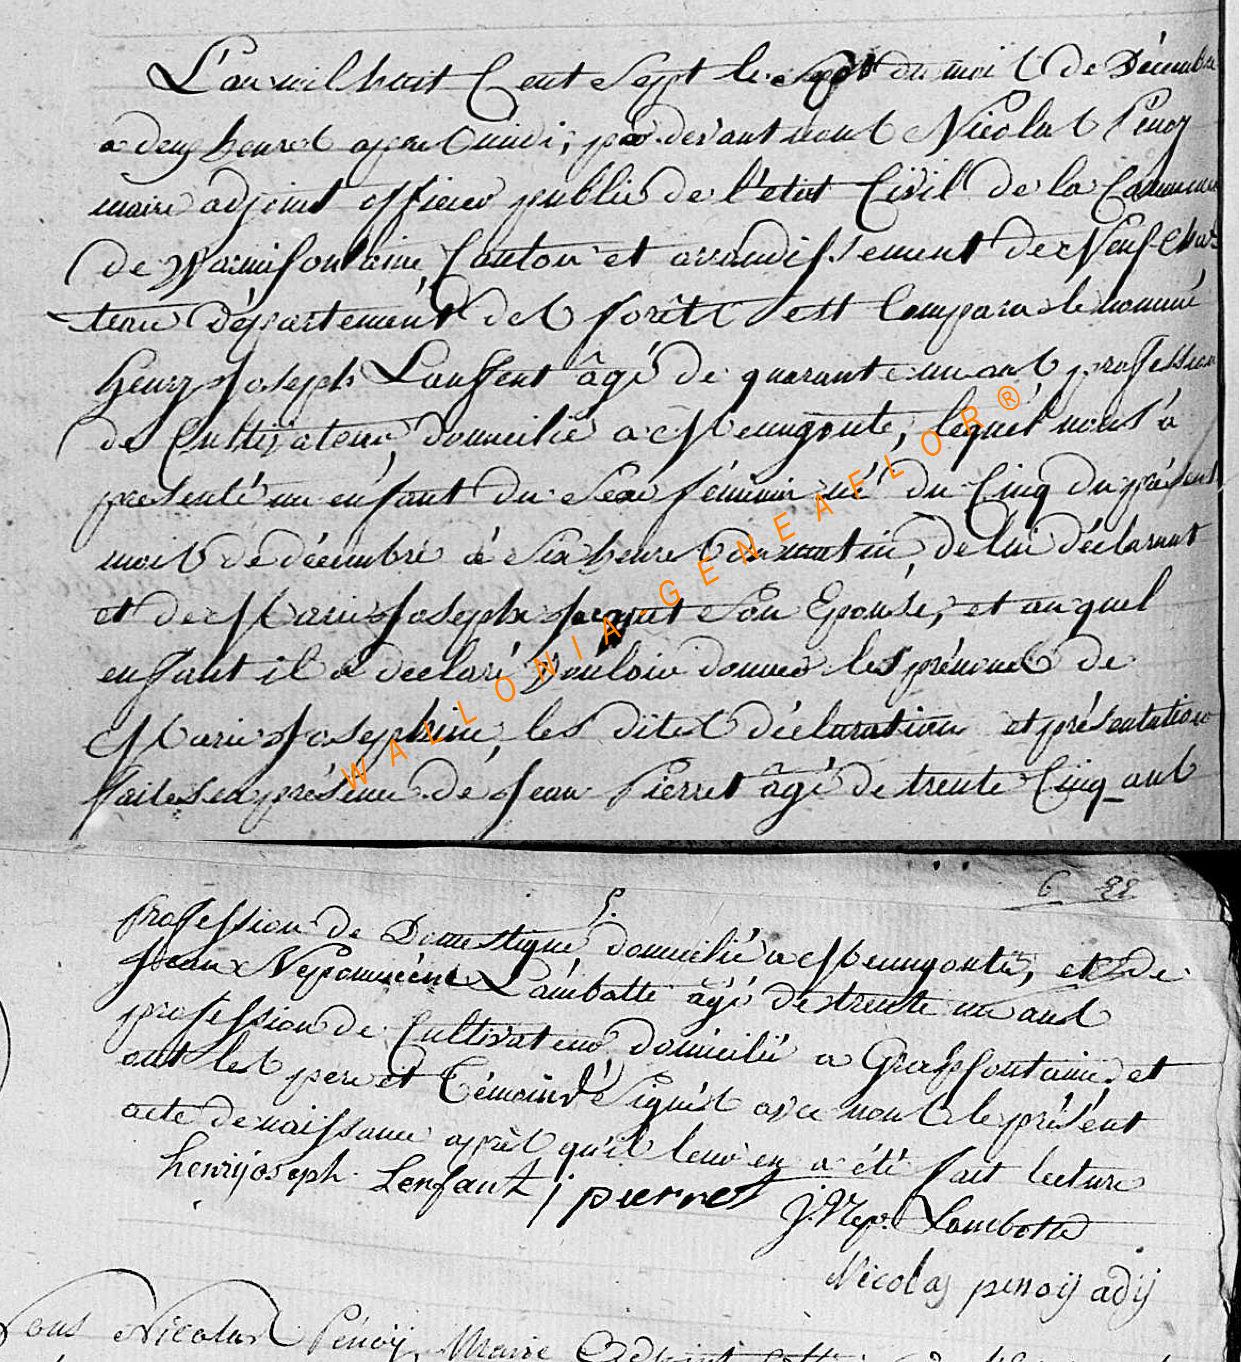 L'an mil huit Cent Sept le Sept du mois de Décembre
a deux heures apres midi, par devant nous Nicolas Pénoy
maire adjoint officier public de l'etat Civil de la Commune
de Warmifontaine, Canton et arrondissement de Neuf-Cha-
teau Département des forêts est Comparu le nommé
henry Joseph Lanffent âgé de quarante un ans profession
de Cultivateur, domicilié a Menugoute, lequel nous à
presenté un enfant du Sexe féminin né du Cinq du présent
mois de décembre à Six heures du matin, de lui déclarant
et de Marie Joseph Jacquet Son Epouse, et au quel
enfant il a declaré vouloir donner les prénoms de
Marie Josephine, les dites déclaration et présentation
faites en présence de Jean Pierret âgé de trente Cinq ans
6 22
profession de Domestique, domicilié a Menugoute, et de
Jean Nepomucène Lambotte âgé de trente un ans
profession de Cultivateur, domicilié a Grapfontaine, et
ont les pere et Témoins Signés avec nous le présent
acte de naissance après qu'il leur en a été fait lecture
henrijoseph Lenfant j pierret J. Nep. Lambotte
Nicolas penoij adij
Nous Nicolas Pénoÿ, Maire Adjoint
WALLONIA-GENEAELOR®